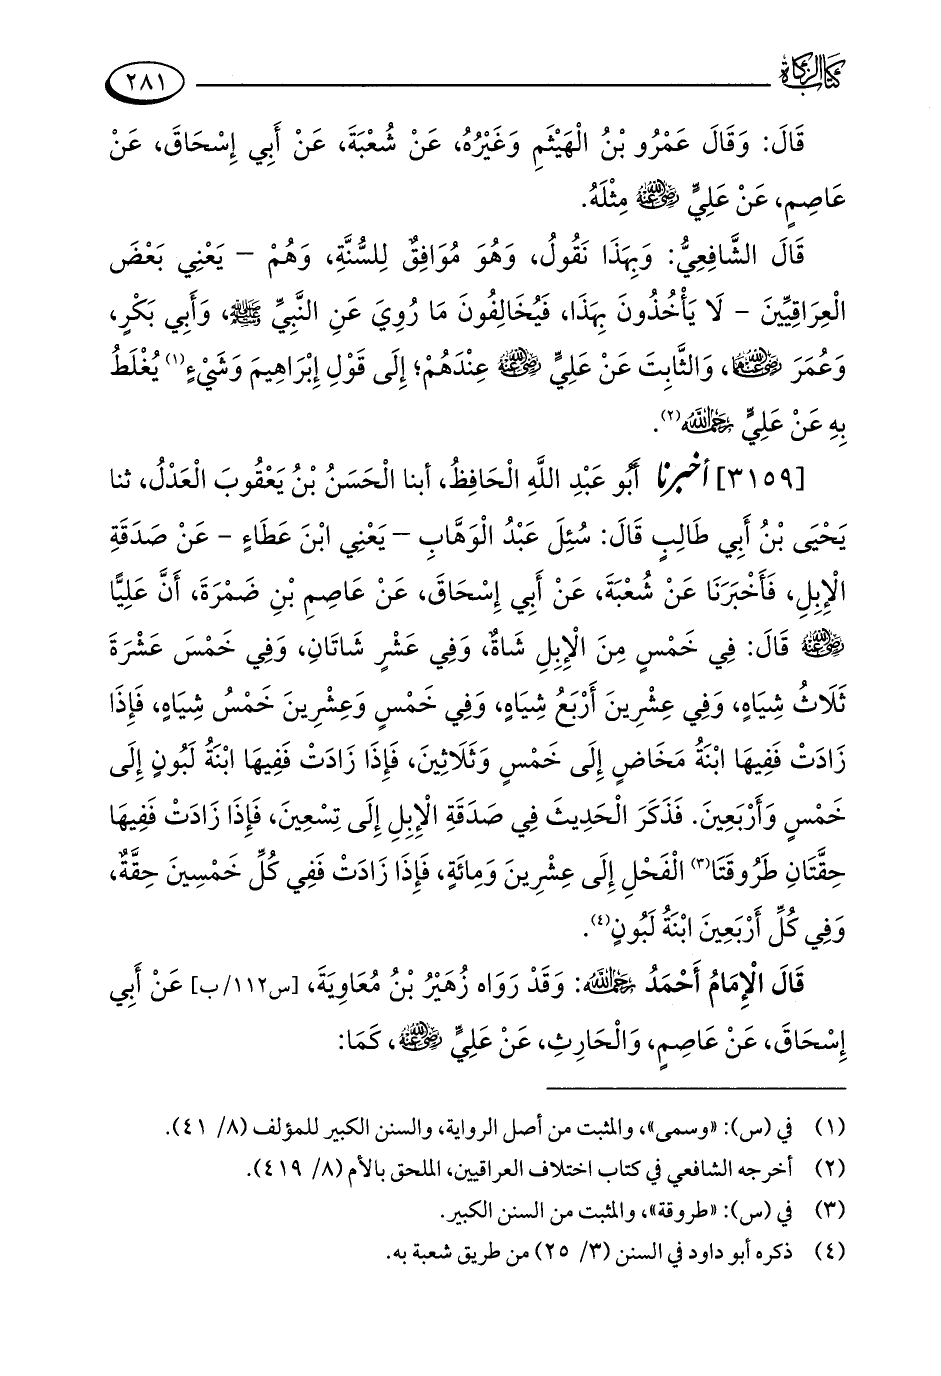 كتاب الزكاة
٢٨١
قَالَ: وَقَالَ عَمْرُو بْنُ الْهَيْثَمِ وَغَيْرُهُ، عَنْ شُعْبَةَ، عَنْ أَبِي إِسْحَاقَ، عَنْ
عَاصِمٍ، عَنْ عَلِيٍّ رضي الله عنه مِثْلَهُ.
قَالَ الشَّافِعِيُّ: وَبِهَذَا نَقُولُ، وَهُوَ مُوَافِقٌ لِلسُّنَّةِ، وَهُمْ – يَعْنِي بَعْضَ
الْعِرَاقِيِّينَ – لَا يَأْخُذُونَ بِهَذَا، فَيُخَالِفُونَ مَا رُوِيَ عَنِ النَّبِيِّ ﷺ، وَأَبِي بَكْرٍ،
وَعُمَرَ رضي الله عنهما، وَالثَّابِتَ عَنْ عَلِيٍّ رضي الله عنه عِنْدَهُمْ؛ إِلَى قَوْلِ إِبْرَاهِيمَ وَشَيْءٍ(١) يُغْلَطُ
بِهِ عَنْ عَلِيٍّ رحمه الله(٢).
[٣١٥٩] أخبرنا أَبُو عَبْدِ اللَّهِ الْحَافِظُ، أبنا الْحَسَنُ بْنُ يَعْقُوبَ الْعَدْلُ، ثنا
يَحْيَى بْنُ أَبِي طَالِبٍ قَالَ: سُئِلَ عَبْدُ الْوَهَّابِ – يَعْنِي ابْنَ عَطَاءٍ – عَنْ صَدَقَةِ
الْإِبِلِ، فَأَخْبَرَنَا عَنْ شُعْبَةَ، عَنْ أَبِي إِسْحَاقَ، عَنْ عَاصِمِ بْنِ ضَمْرَةَ، أَنَّ عَلِيًّا
رضي الله عنه قَالَ: فِي خَمْسٍ مِنَ الْإِبِلِ شَاةٌ، وَفِي عَشْرٍ شَاتَانِ، وَفِي خَمْسَ عَشْرَةَ
ثَلَاثُ شِيَاهٍ، وَفِي عِشْرِينَ أَرْبَعُ شِيَاهٍ، وَفِي خَمْسٍ وَعِشْرِينَ خَمْسُ شِيَاهٍ، فَإِذَا
زَادَتْ فَفِيهَا ابْنَةُ مَخَاضٍ إِلَى خَمْسٍ وَثَلَاثِينَ، فَإِذَا زَادَتْ فَفِيهَا ابْنَةُ لَبُونٍ إِلَى
خَمْسٍ وَأَرْبَعِينَ. فَذَكَرَ الْحَدِيثَ فِي صَدَقَةِ الْإِبِلِ إِلَى تِسْعِينَ، فَإِذَا زَادَتْ فَفِيهَا
حِقَّتَانِ طَرُوقَتَا(٣) الْفَحْلِ إِلَى عِشْرِينَ وَمِائَةٍ، فَإِذَا زَادَتْ فَفِي كُلِّ خَمْسِينَ حِقَّةٌ،
وَفِي كُلِّ أَرْبَعِينَ ابْنَةُ لَبُونٍ(٤).
قَالَ الْإِمَامُ أَحْمَدُ رحمه الله: وَقَدْ رَوَاه زُهَيْرُ بْنُ مُعَاوِيَةَ، [س١١٢/ب] عَنْ أَبِي
إِسْحَاقَ، عَنْ عَاصِمٍ، وَالْحَارِثِ، عَنْ عَلِيٍّ رضي الله عنه، كَمَا:
(١) في (س): «وسمى»، والمثبت من أصل الرواية، والسنن الكبير للمؤلف (٨/ ٤١).
(٢) أخرجه الشافعي في كتاب اختلاف العراقيين، الملحق بالأم (٨/ ٤١٩).
(٣) في (س): «طروقة»، والمثبت من السنن الكبير.
(٤) ذكره أبو داود في السنن (٣/ ٢٥) من طريق شعبة به.